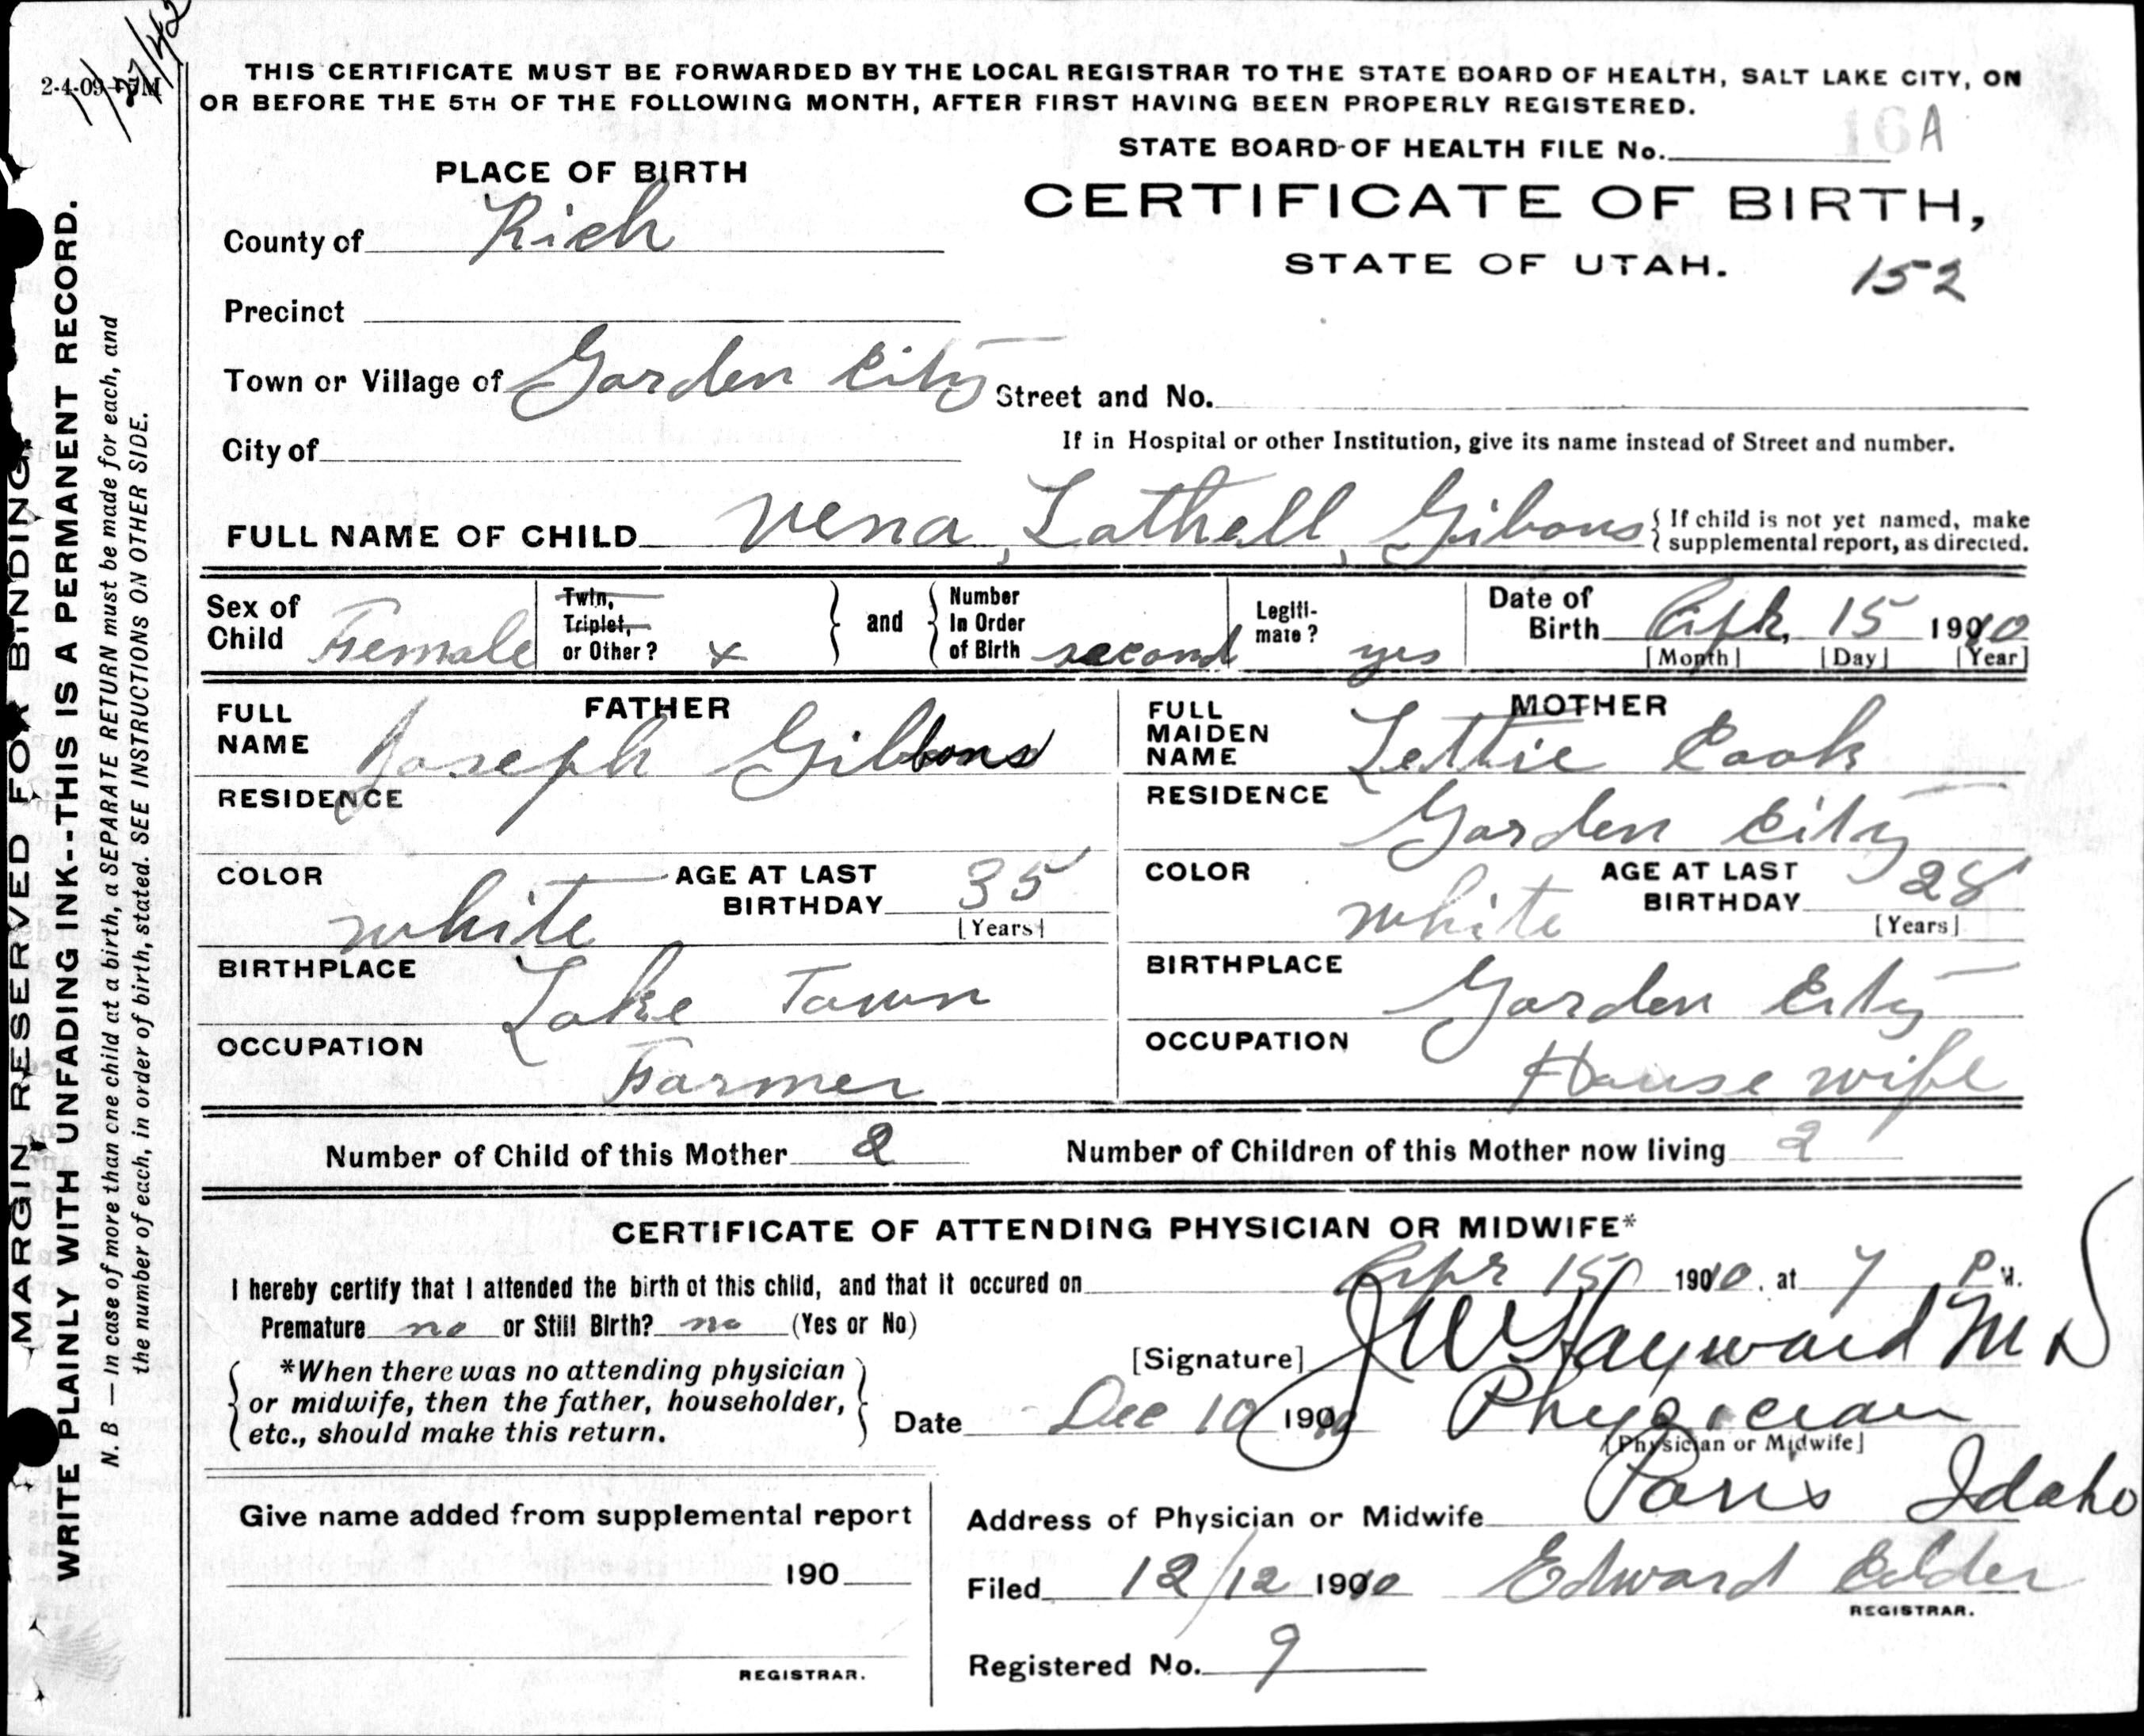 2-4-09
1/27/42
THIS CERTIFICATE MUST BE FORWARDED BY THE LOCAL REGISTRAR TO THE STATE BOARD OF HEALTH, SALT LAKE CITY, ON
OR BEFORE THE 5TH OF THE FOLLOWING MONTH, AFTER FIRST HAVING BEEN PROPERLY REGISTERED.
STATE BOARD OF HEALTH FILE No. 16 A
PLACE OF BIRTH
CERTIFICATE OF BIRTH,
STATE OF UTAH.
152
County of Rich
Precinct
Town or Village of Garden City Street and No.
City of
If in Hospital or other Institution, give its name instead of Street and number.
FULL NAME OF CHILD Nena, Lathell, Gibons { If child is not yet named, make
supplemental report, as directed.
Sex of Child Female
Twin, Triplet, or Other? x } and { Number In Order of Birth second
Legitimate? yes
Date of Birth Apr, 15 1910
[Month] [Day] [Year]
FATHER
FULL NAME Joseph Gibbons
RESIDENCE
COLOR white AGE AT LAST BIRTHDAY 35
[Years]
BIRTHPLACE Lake Town
OCCUPATION Farmer
MOTHER
FULL MAIDEN NAME Lettie Cook
RESIDENCE Garden City
COLOR white AGE AT LAST BIRTHDAY 28
[Years]
BIRTHPLACE Garden City
OCCUPATION House wife
Number of Child of this Mother 2 Number of Children of this Mother now living 2
CERTIFICATE OF ATTENDING PHYSICIAN OR MIDWIFE*
I hereby certify that I attended the birth of this child, and that it occured on Apr 15 1910, at 7 P M.
Premature no or Still Birth? no (Yes or No)
[Signature] J W Hayward M D
*When there was no attending physician
or midwife, then the father, householder,
etc., should make this return.
Date Dec 10 1910 Physician
[Physician or Midwife]
Give name added from supplemental report
190
REGISTRAR.
Address of Physician or Midwife Paris Idaho
Filed 12/12 1910 Edward Calder
REGISTRAR.
Registered No. 9
MARGIN RESERVED FOR BINDING
WRITE PLAINLY WITH UNFADING INK--THIS IS A PERMANENT RECORD.
N. B — In case of more than one child at a birth, a SEPARATE RETURN must be made for each, and
the number of each, in order of birth, stated. SEE INSTRUCTIONS ON OTHER SIDE.